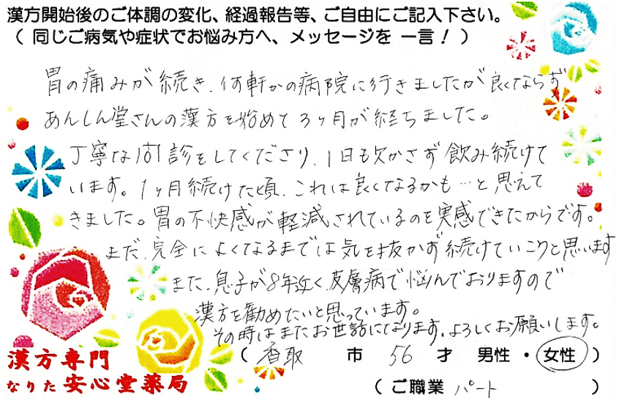 漢方開始後のご体調の変化、経過報告等、ご自由にご記入下さい。
（同じご病気や症状でお悩み方へ、メッセージを 一言！）
胃の痛みが続き、何軒かの病院に行きましたが良くならず
あんしん堂さんの漢方を始めて3ヶ月が経ちました。
丁寧な問診をしてくださり、1日も欠かさず飲み続けて
います。1ヶ月続けた頃、これは良くなるかも…と思えて
きました。胃の不快感が軽減されているのを実感できたからです。
まだ、完全によくなるまでは気を抜かず続けていこうと思います
また、息子が8年近く皮膚病で悩んでおりますので
漢方を勧めたいと思っています。
その時はまたお世話になります。よろしくお願いします。
（ 香取 市 56 才 男性・女性 ）
漢方専門
なりた 安心堂薬局
（ご職業 パート ）